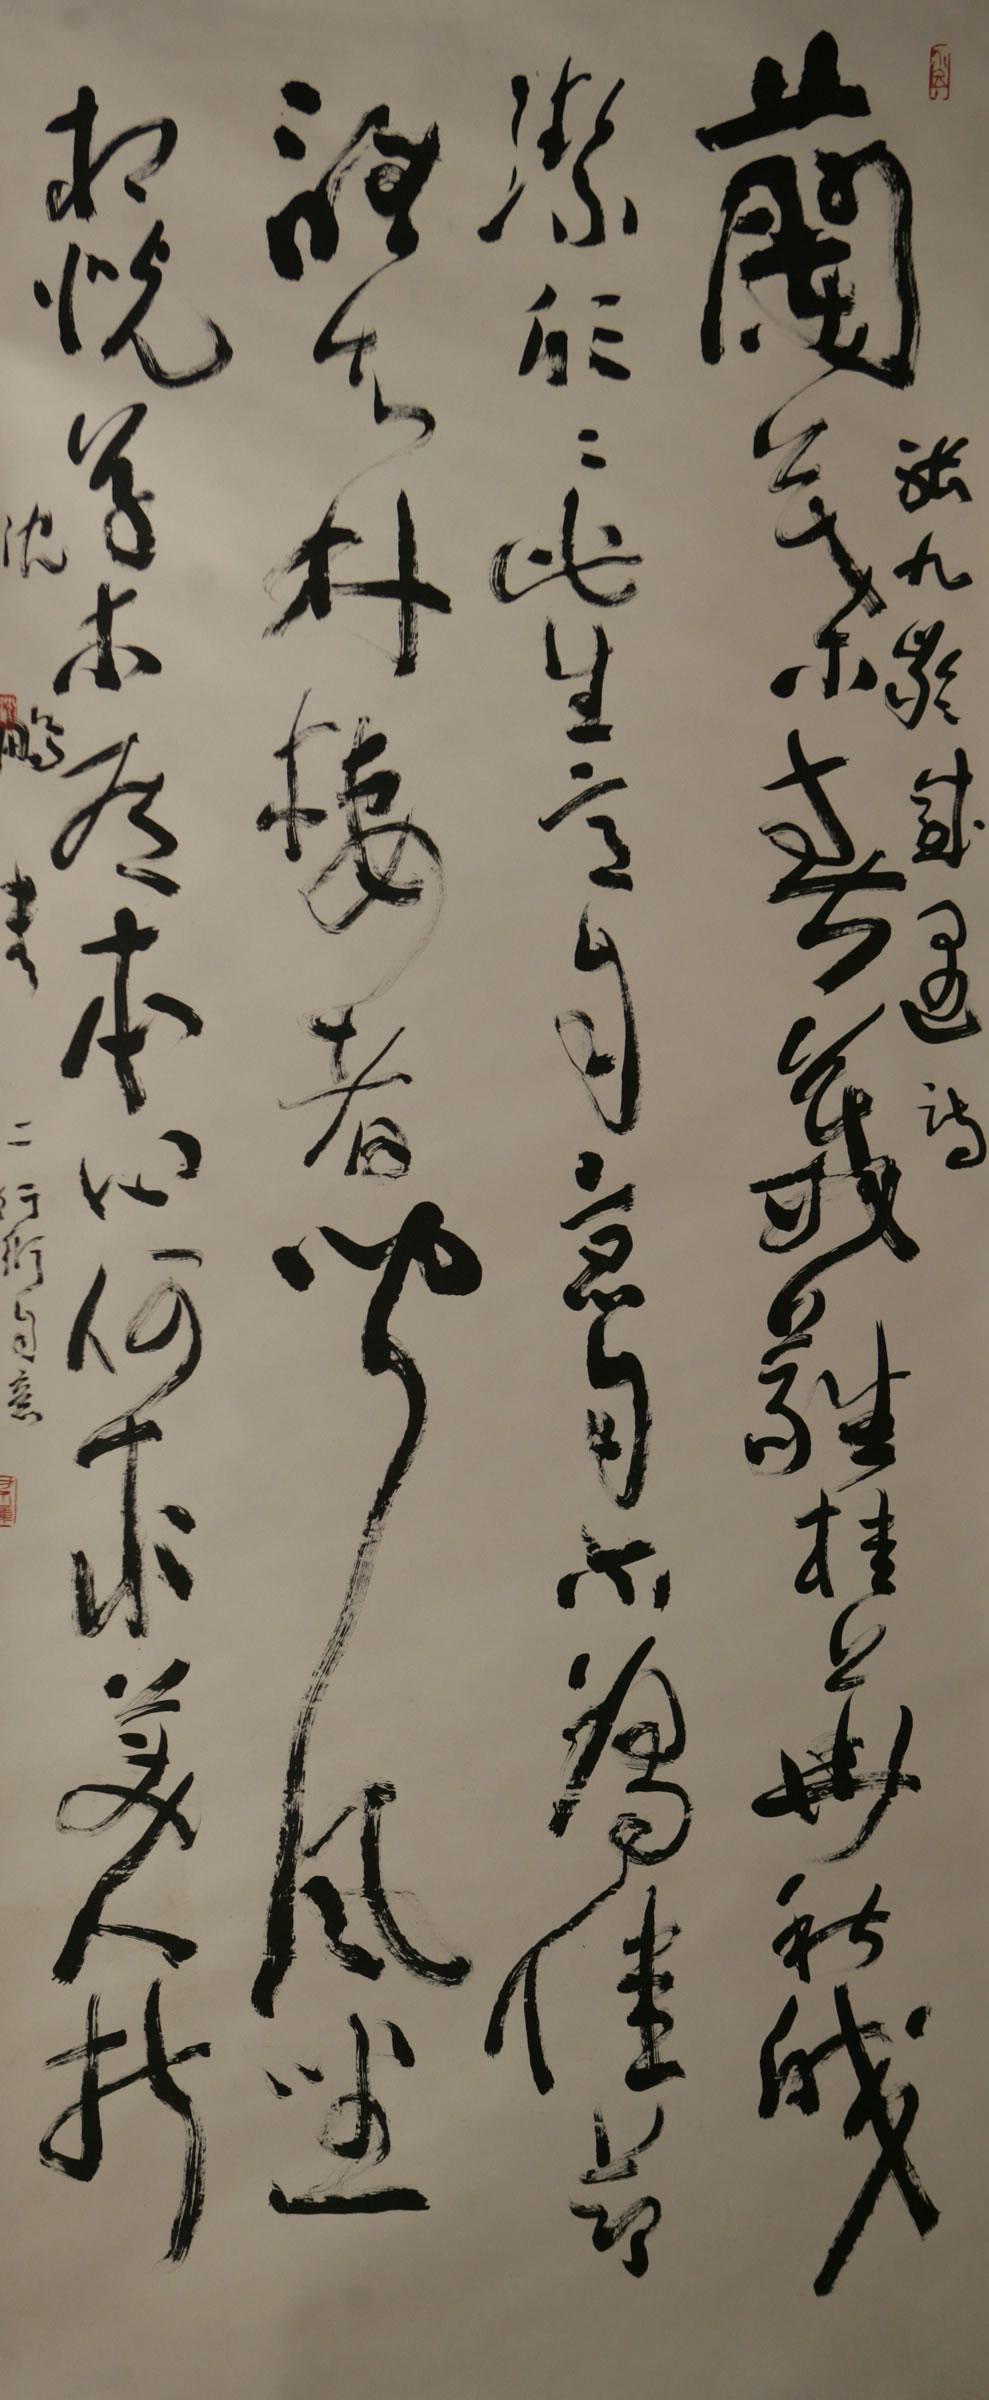 張九齡感遇詩
蘭葉春葳蕤桂華秋皎
潔欣々此生意自意自尔為佳節
誰知林棲者聞風坐
相悅草木有本心何求美人折
沈鵬書 二行衍自意